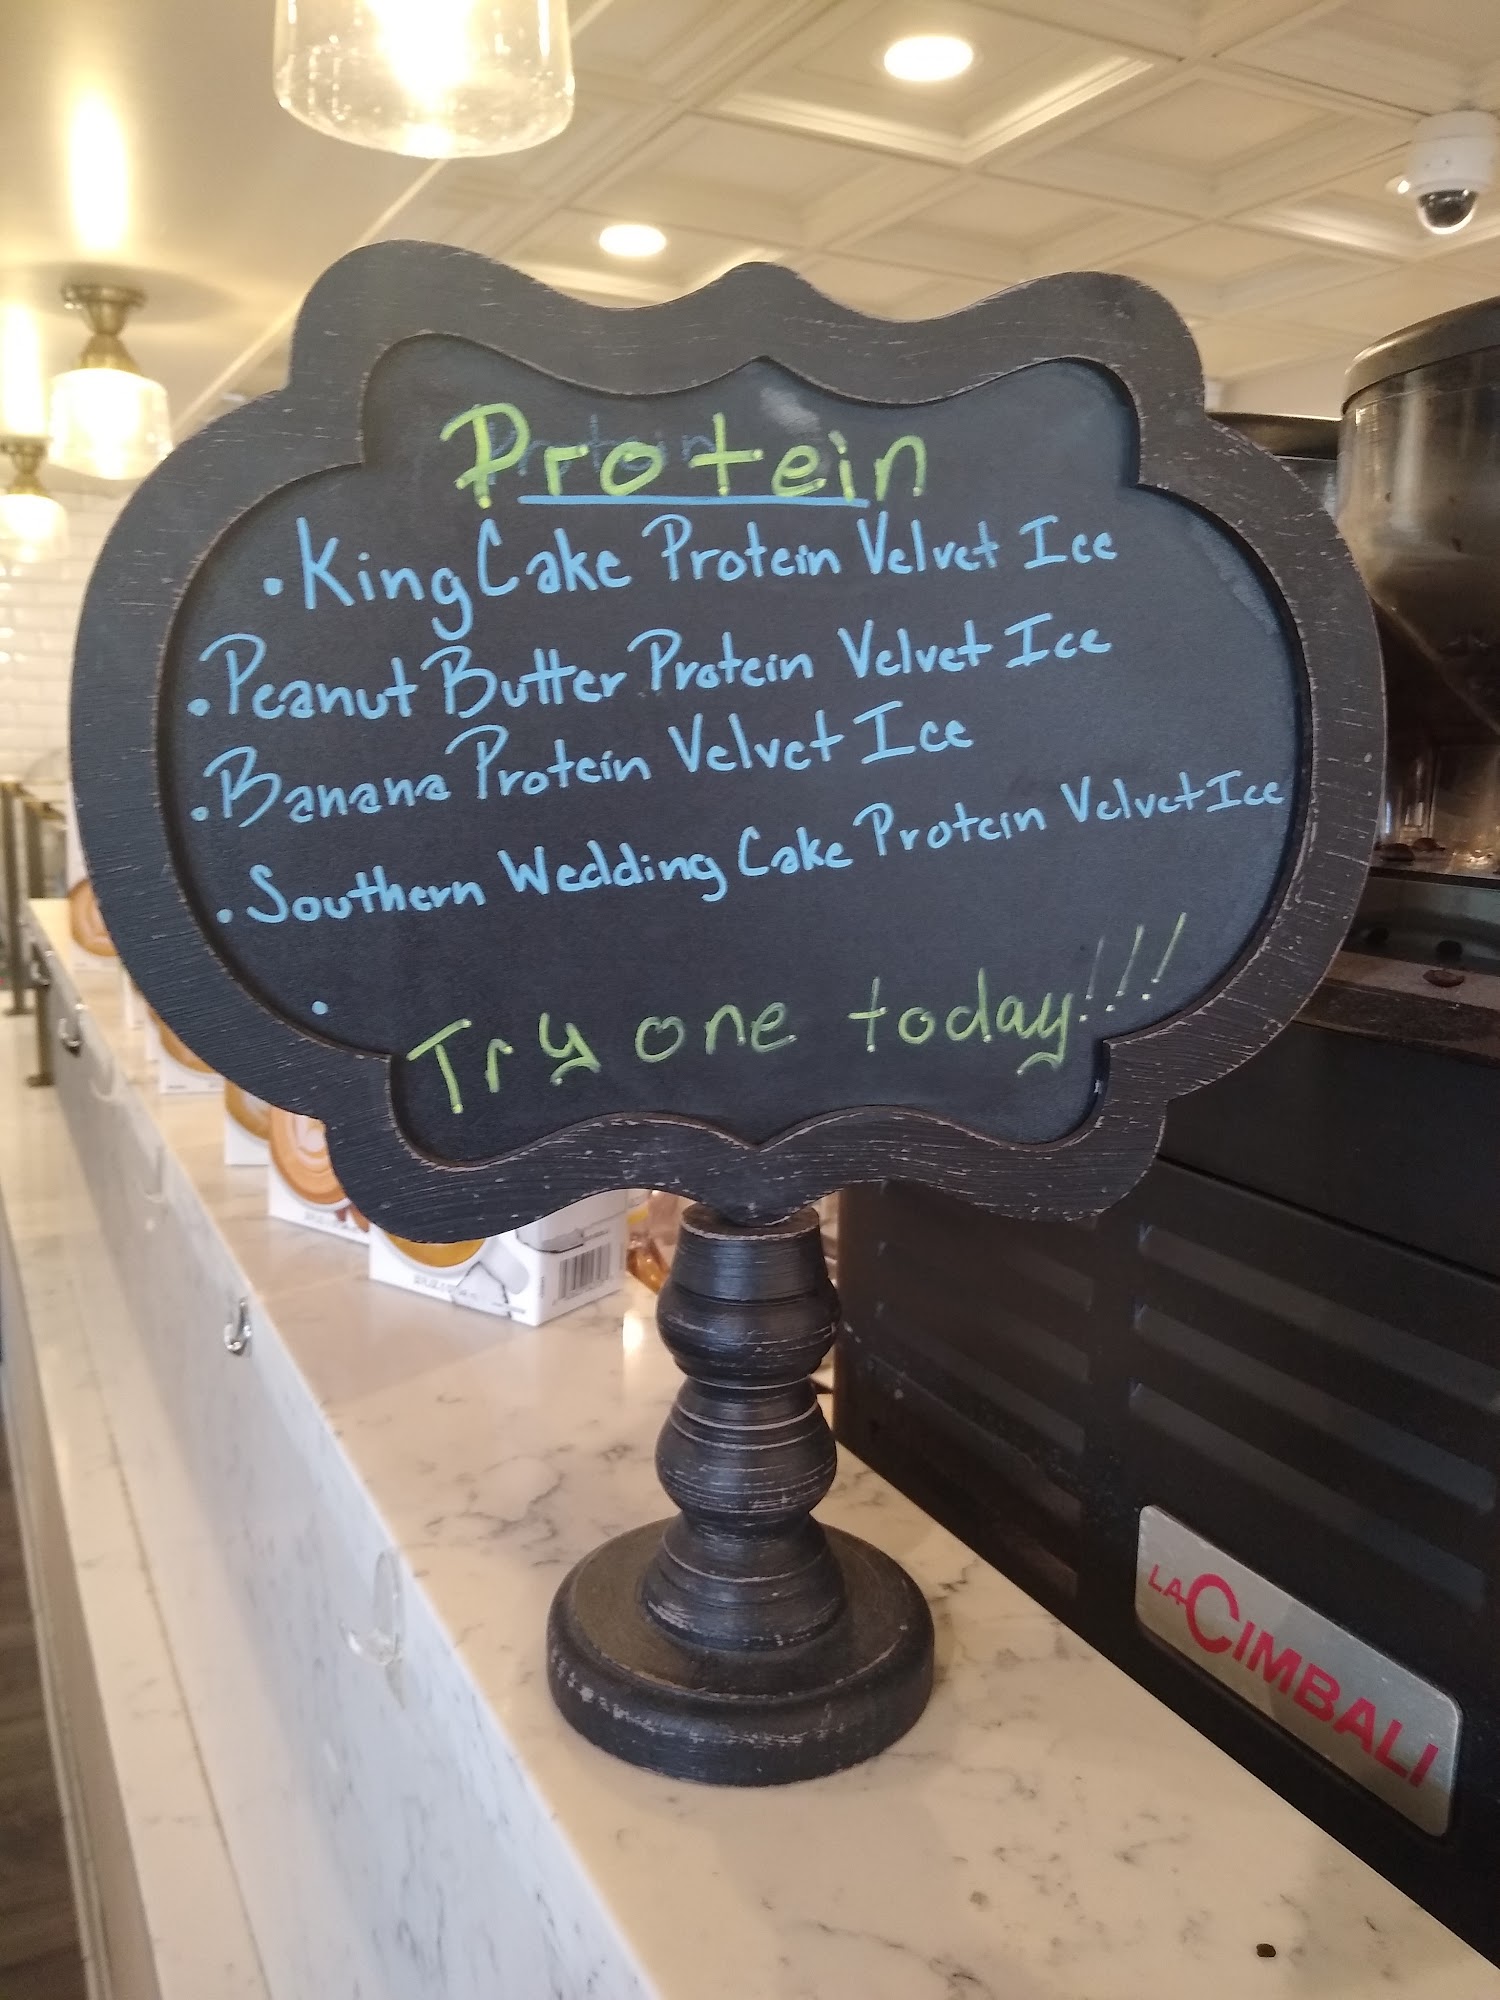 Protein
• King Cake Protein Velvet Ice
• Peanut Butter Protein Velvet Ice
• Banana Protein Velvet Ice
• Southern Wedding Cake Protein Velvet Ice
•
Try one today!!!
LA CIMBALI